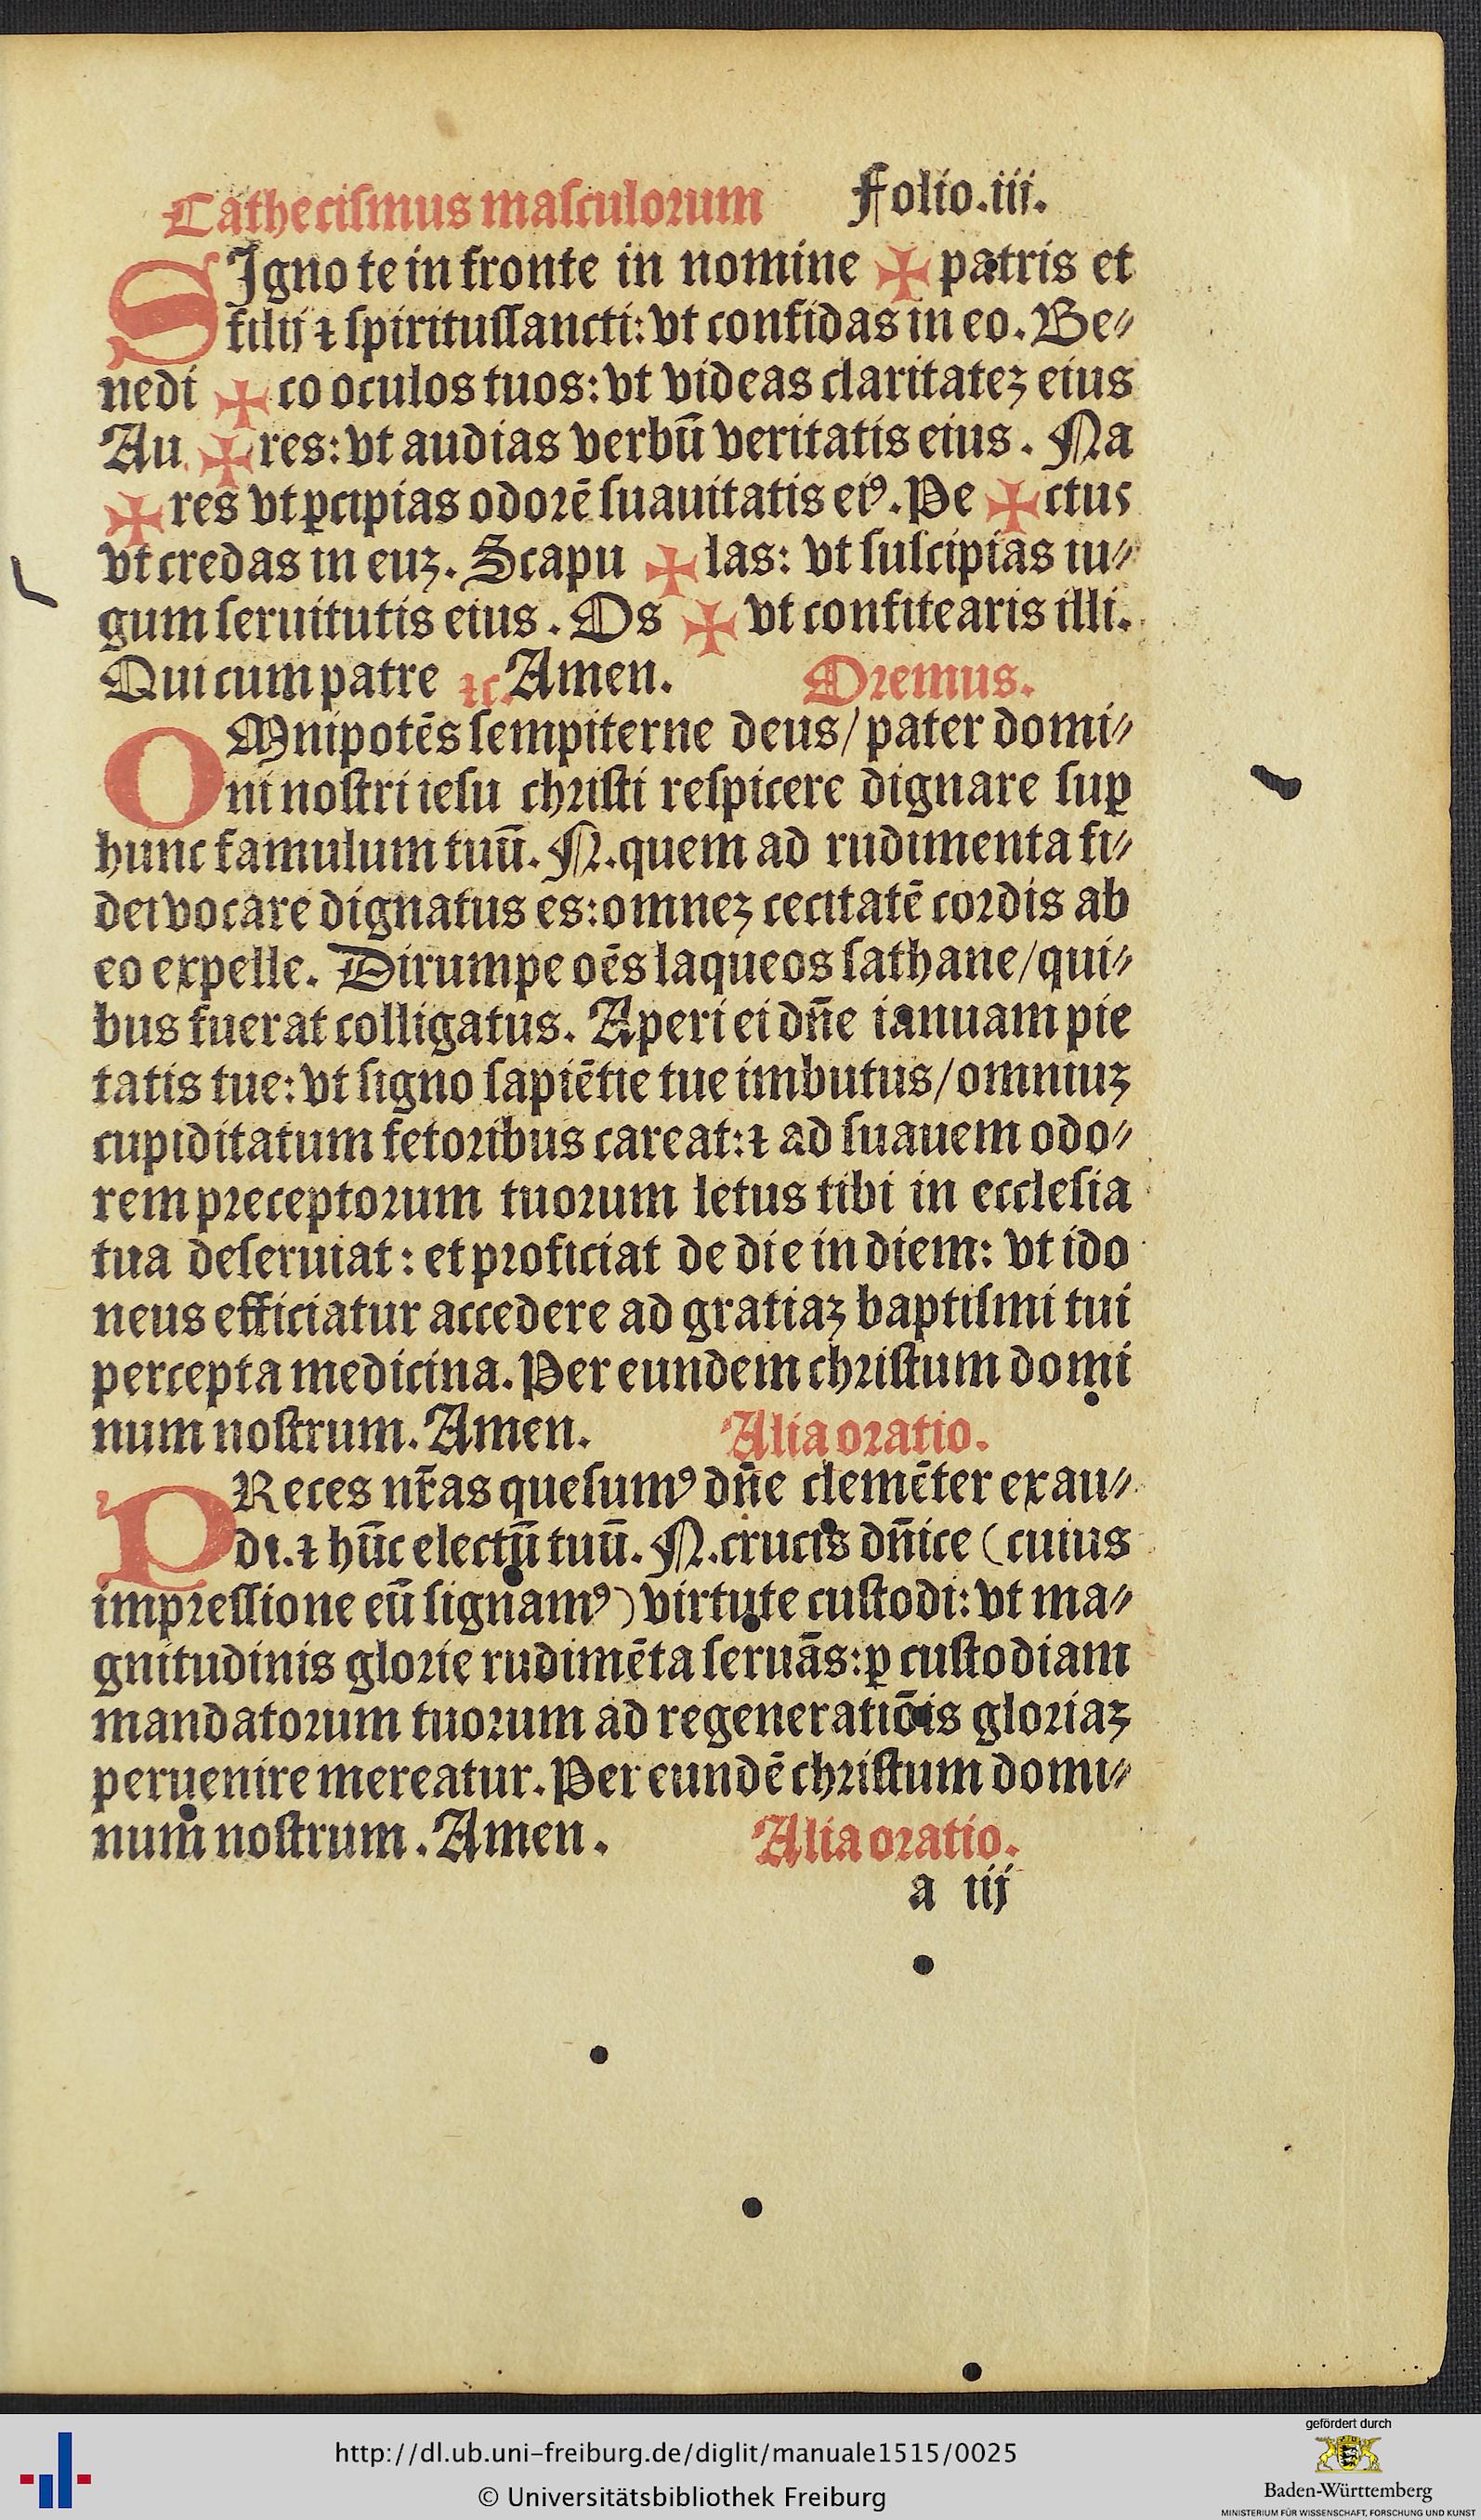 Cathecismus masculorum Folio.iii.
SIgno te in fronte in nomine ✠ patris et
filij ⁊ spiritussancti: vt confidas in eo. Be⸗
nedi ✠ co oculos tuos: vt videas claritatez eius
Au ✠ res: vt audias verbū veritatis eius. Na
✠ res vt ꝑcipias odorē suauitatis eiꝰ. Pe ✠ ctus
vt credas in euz. Scapu ✠ las: vt suscipias iu⸗
gum seruitutis eius. Os ✠ vt confitearis illi.
Qui cum patre ⁊c. Amen. Oremus.
OMnipotēs sempiterne deus/ pater domi⸗
ni nostri iesu christi respicere dignare suꝑ
hunc famulum tuū. N. quem ad rudimenta fi⸗
dei vocare dignatus es: omnez cecitatē cordis ab
eo expelle. Dirumpe oēs laqueos sathane/ qui⸗
bus fuerat colligatus. Aperi ei dn̄e ianuam pie
tatis tue: vt signo sapiētie tue imbutus/ omniuz
cupiditatum fetoribus careat: ⁊ ad suauem odo⸗
rem preceptorum tuorum letus tibi in ecclesia
tua deseruiat: et proficiat de die in diem: vt ido
neus efficiatur accedere ad gratiaz baptismi tui
percepta medicina. Per eundem christum domi
num nostrum. Amen. Alia oratio.
PReces nr̄as quesumꝰ dn̄e clemēter exau⸗
di. ⁊ hūc electū tuū. N. crucis dn̄ice (cuius
impressione eū signamꝰ) virtute custodi: vt ma⸗
gnitudinis glorie rudimēta seruās: ꝑ custodiam
mandatorum tuorum ad regeneratiōis gloriaz
peruenire mereatur. Per eundē christum domi⸗
num nostrum. Amen. Alia oratio.
a iij
http://dl.ub.uni-freiburg.de/diglit/manuale1515/0025
© Universitätsbibliothek Freiburg
gefördert durch
Baden-Württemberg
MINISTERIUM FÜR WISSENSCHAFT, FORSCHUNG UND KUNST